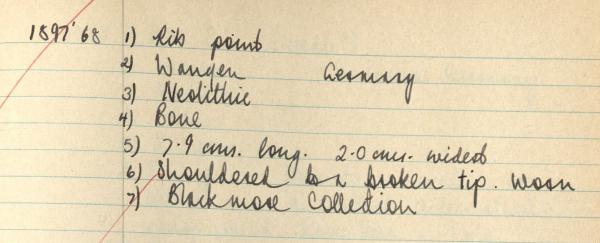 1897'68 1) Rib point
2) Wangen Germany
3) Neolithic
4) Bone
5) 7.9 cms. long. 2.0 cms. widest
6) Shouldered to a broken tip. Worn
7) Blackmore Collection